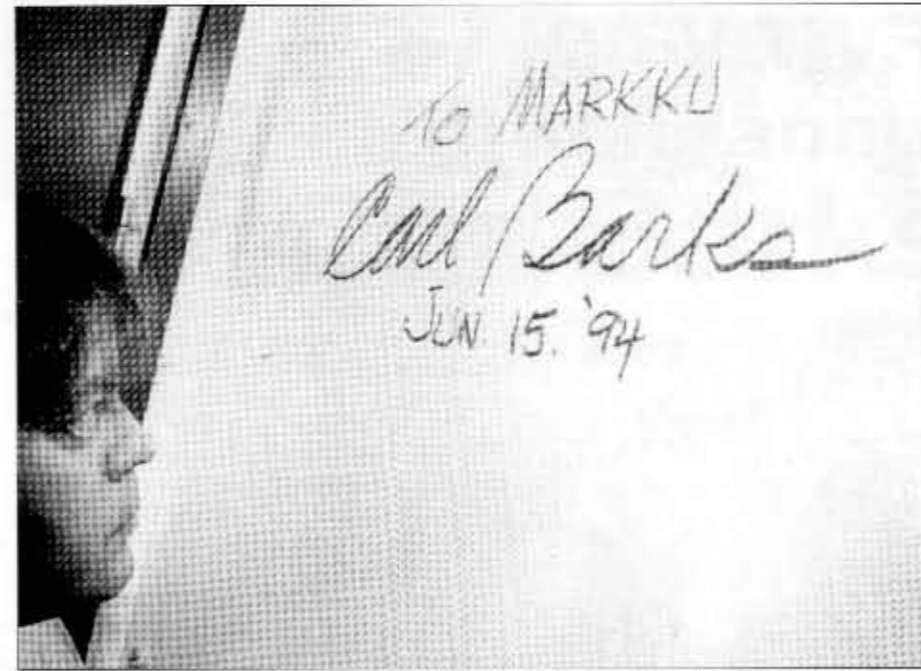 To MARKKU
Carl Barks
JUN. 15. '94